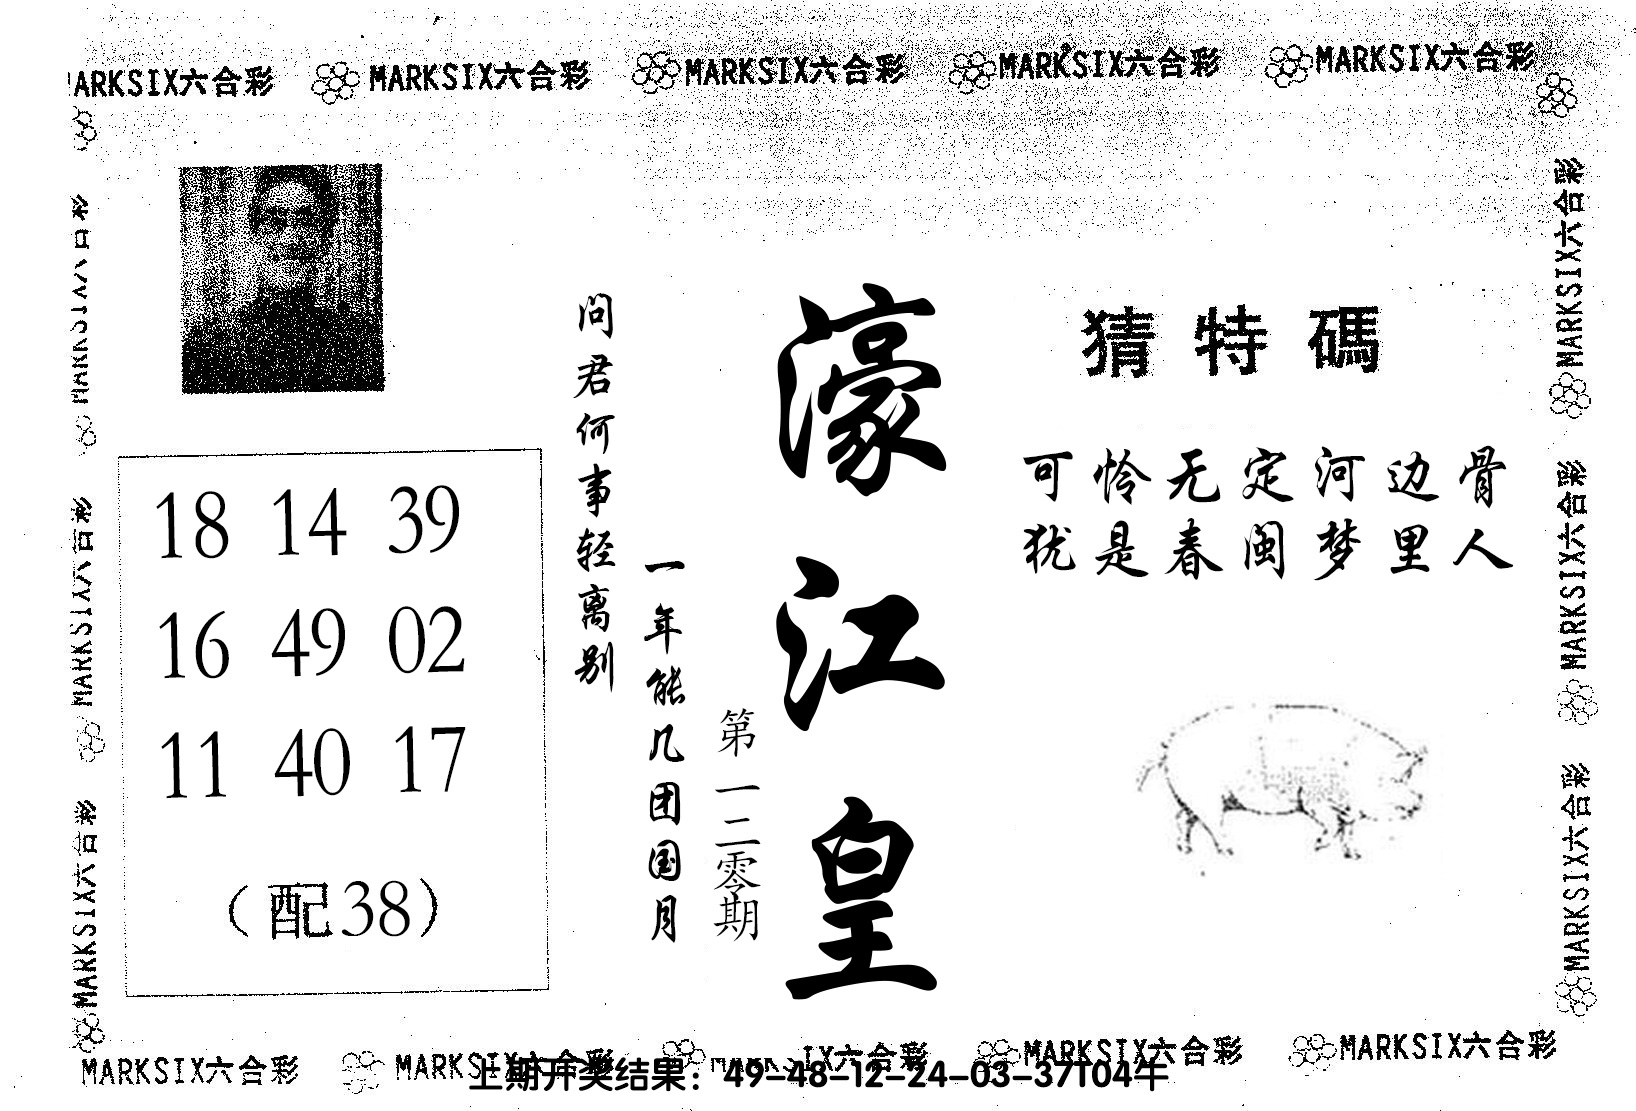 MARKSIX六合彩 MARKSIX六合彩 MARKSIX六合彩 MARKSIX六合彩
猜特碼
可怜无定河边骨
犹是春闺梦里人
濠江皇
第一二零期
一年能几团国月
问君何事轻离别
18 14 39
16 49 02
11 40 17
（配38）
MARKSIX六合彩
MARKSIX六合彩
MARKSIX六合彩
MARKSIX六合彩
MARKSIX六合彩
MARKSIX六合彩 MARKSIX六合彩 MARKSIX六合彩 MARKSIX六合彩
上期开奖结果：49-48-12-24-03-37T04牛